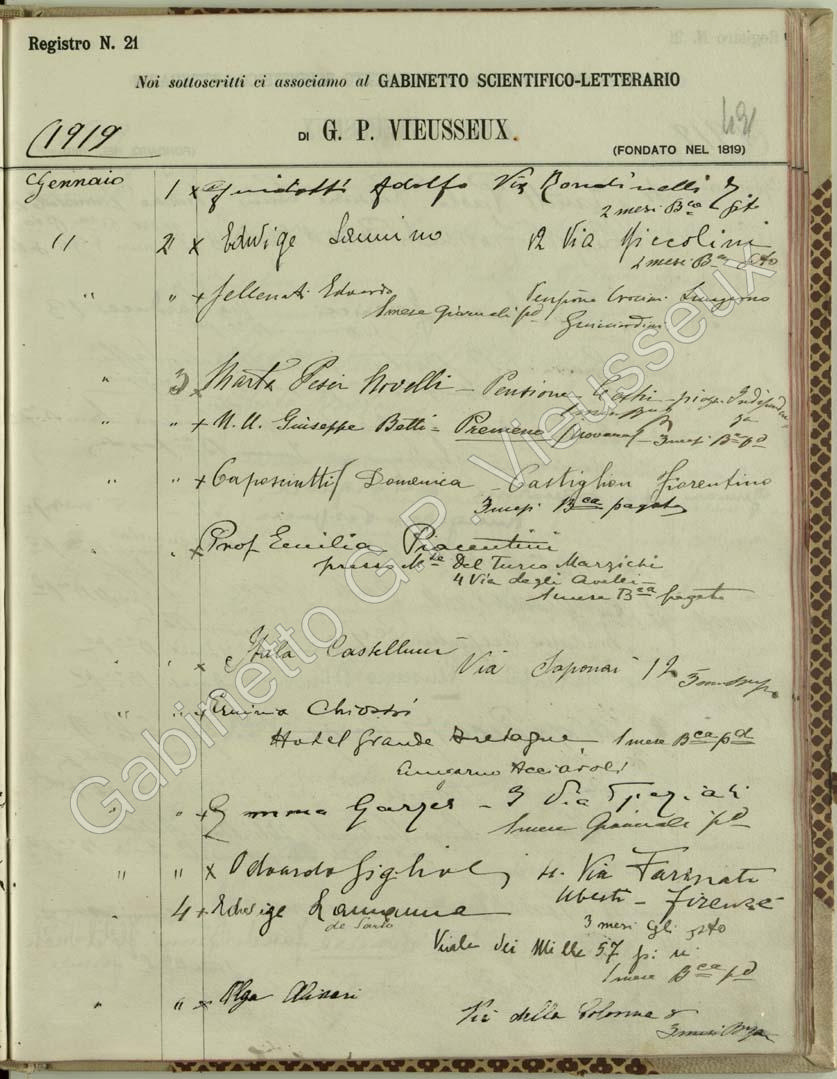 Registro N. 21
Noi sottoscritti ci associamo al GABINETTO SCIENTIFICO-LETTERARIO
1919
DI G. P. VIEUSSEUX.
(FONDATO NEL 1819)
Gennaio 1 x Guidotti Adolfo Via Rondinelli 7
2 mesi Bca pto
" 2 x Edvige Sannino 12 Via Piccolini
2 mesi Bca
" " x Edoardo Pensione Crocini Lungarno
1 mese Giornali pd Guicciardini
" 3 x Marta Pesci Novelli - Pensione
" " x N. U. Giuseppe Betti = Premeno (Novara) - 3 mesi Bca pd
" " x Domenica - Castiglion Fiorentino
3 mesi Bca pagato
" x Prof Emilia Piacentini
presso Mse Del Turco Marzichi
4 Via degli Avelli -
1 mese Bca pagato
" " x Itala Castellucci Via Saponai 12
" " x Erminia Chiostri
Hotel Grande Bretagne 1 mese Bca pd
Lungarno Acciaioli
" " x Gemma Garzes - 3 Via Speziali
1 mese Giornali pd
" " x Odoardo Giglioli 11. Via Farinata
Uberti - Firenze
3 mesi Gli pto
4 x Edvige Lamanna
de Sarlo
Viale dei Mille 57 pi
1 mese Bca pd
" " x Olga Alinari
Via della Colonna 8
Gabinetto G.P. Vieusseux